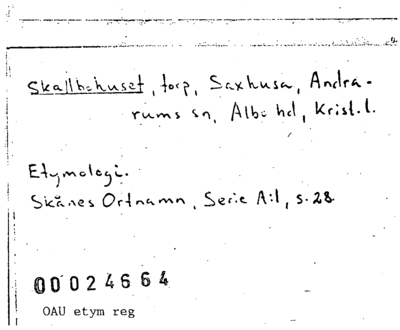 Skallbohuset, torp, Saxhusa, Andra-
rums sn, Albo hd, Krist.l.
Etymologi.
Skånes Ortnamn, Serie A:1, s. 28
00024664
OAU etym reg